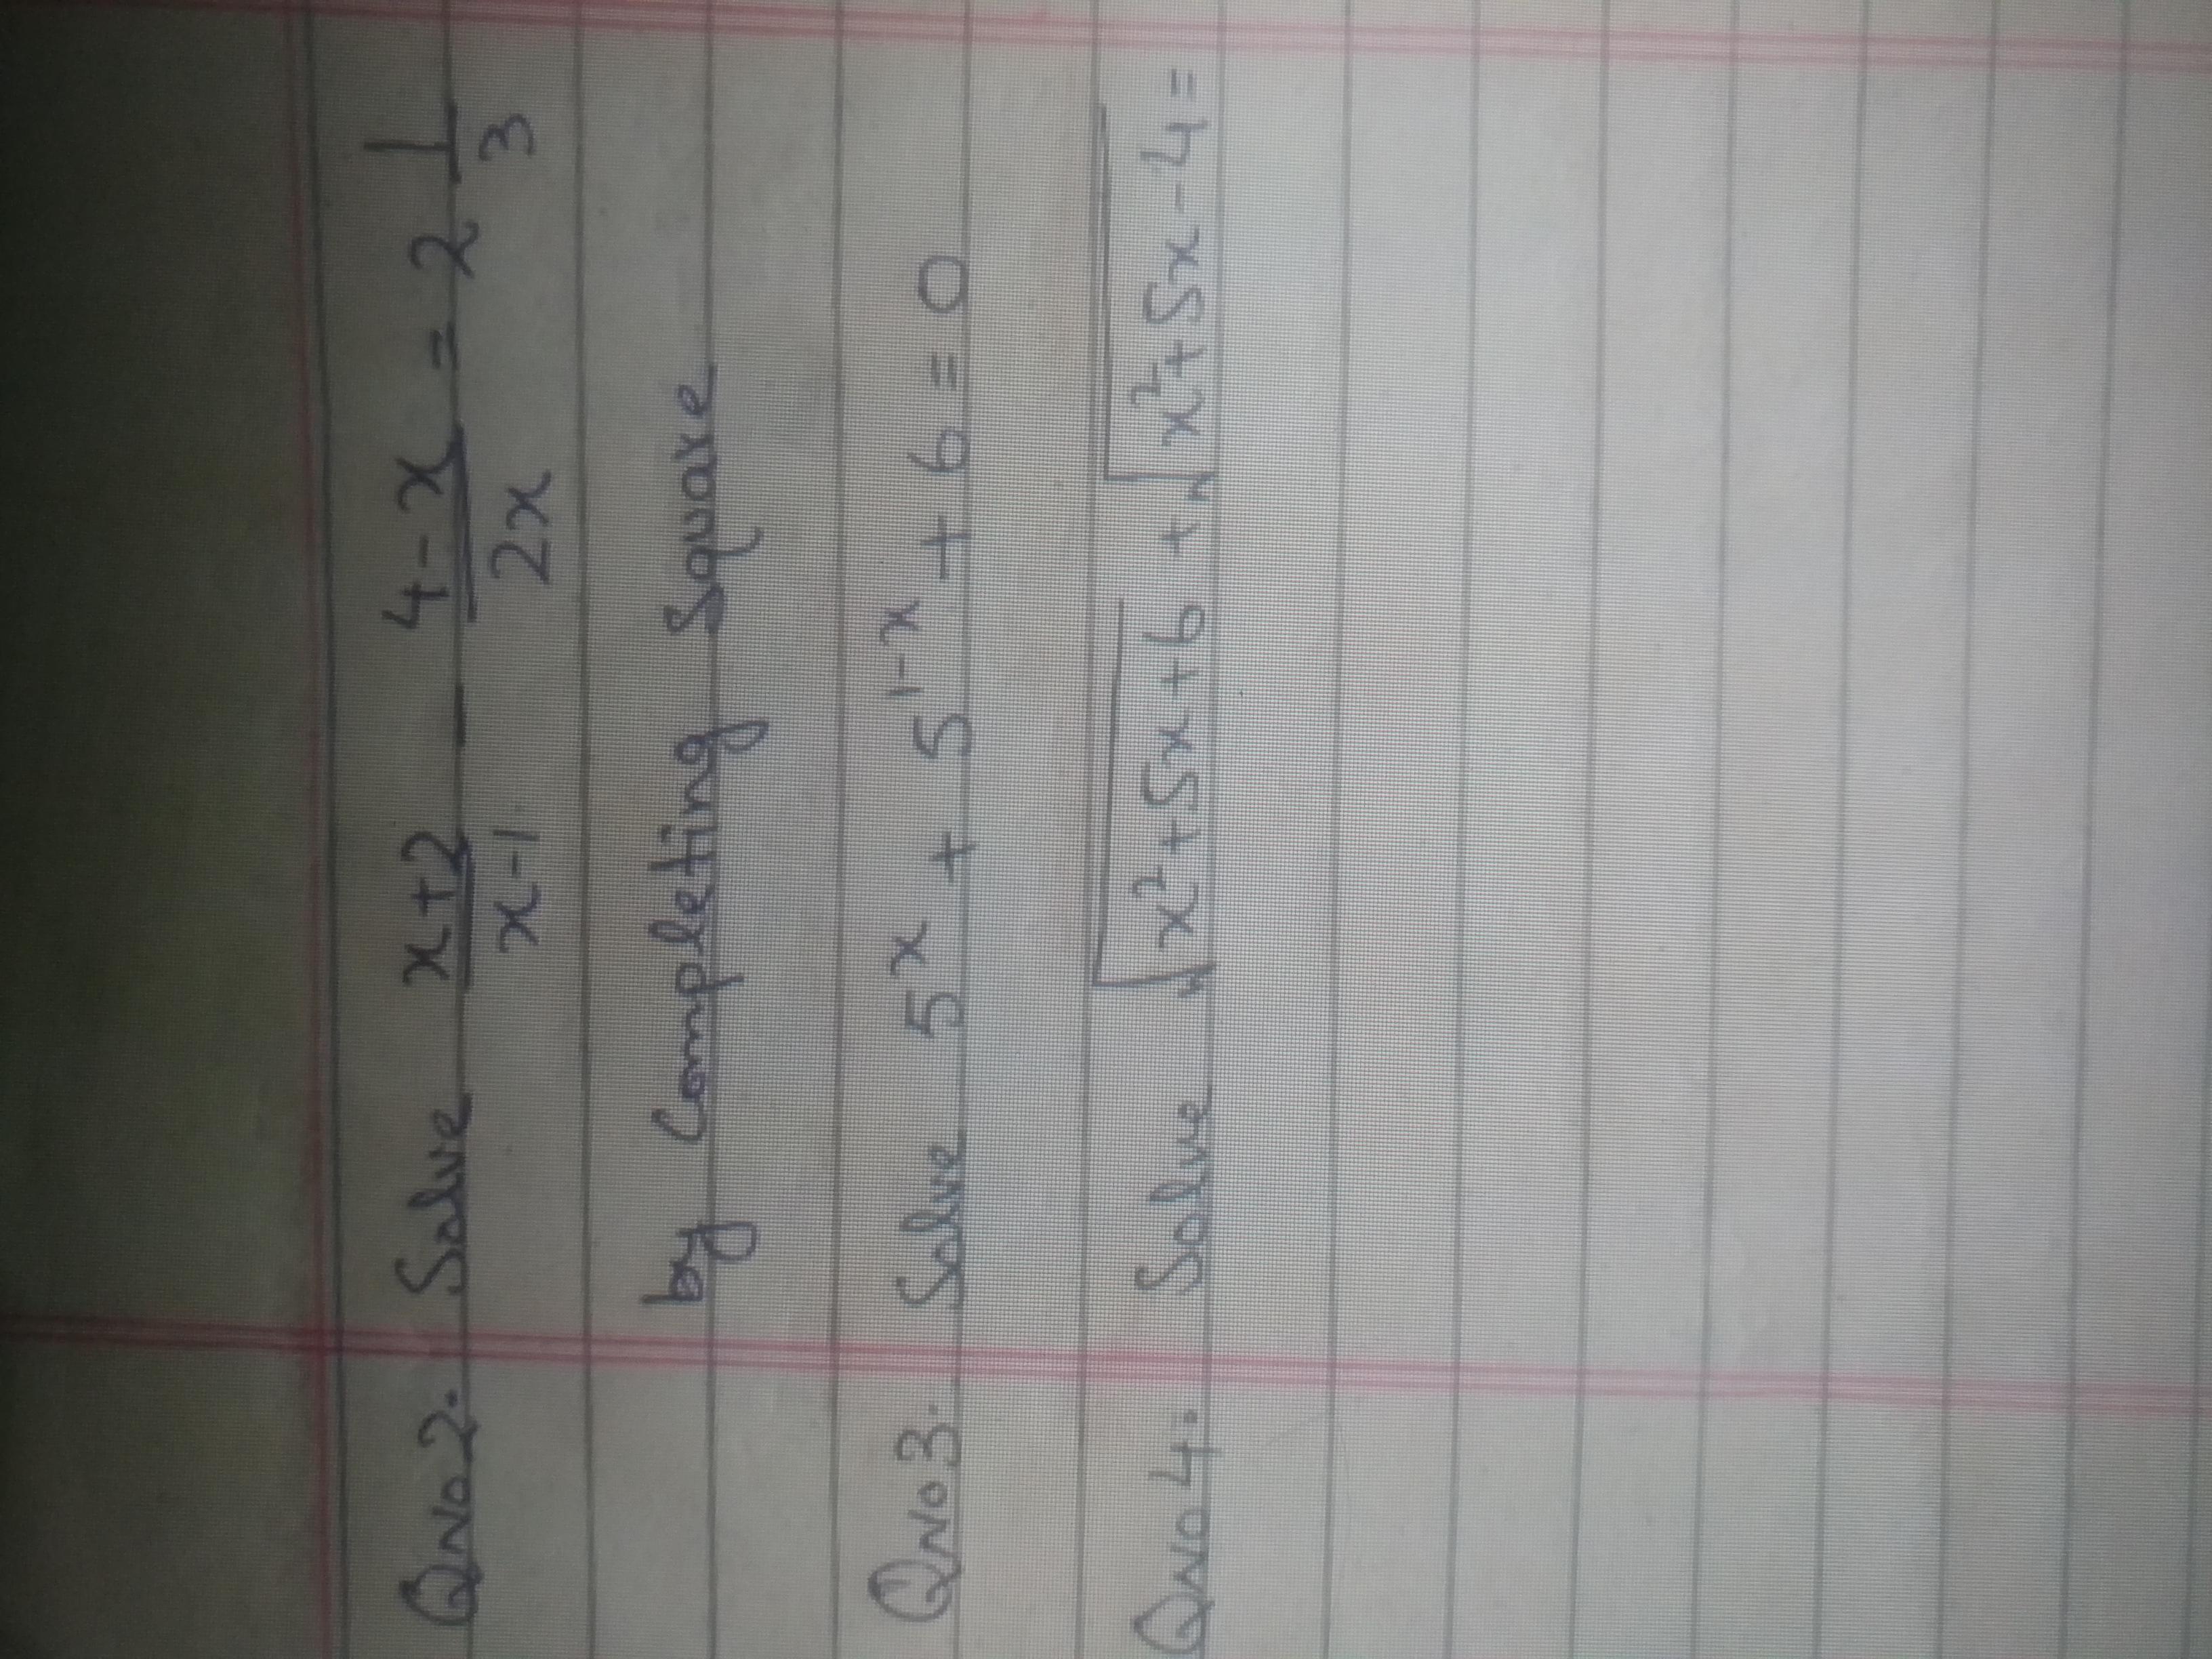 QNo2. Solve (x+2)/(x-1) - (4-x)/(2x) = 2 1/3
by Completing Square
QNo3. Solve 5^x + 5^(1-x) + 6 = 0
QNo4. Solve √(x²+5x+6) + √(x²+5x-4) =